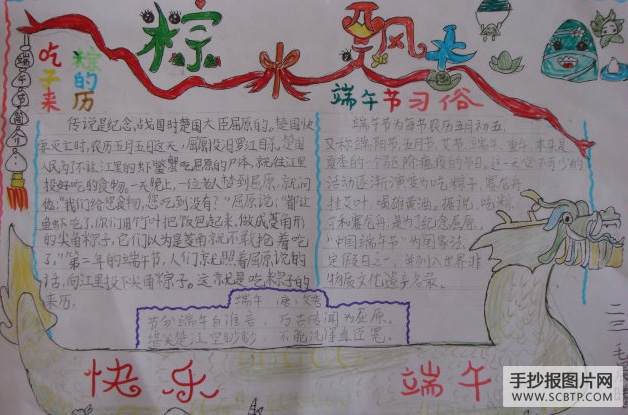 粽米飘香
端午节简介
吃粽
子的
来历
传说是纪念战国时楚国大臣屈原的。楚国快
要灭亡时,农历五月五日这天,屈原投汨罗江自杀。楚国
人民为了不让江里的虾蟹吃屈原的尸体,就往江里
投好吃的食物。一天晚上,一位老人梦到屈原,就问
他:“我们给您食物,您吃到没有?”屈原说:“都让
鱼虾吃了,你们用竹叶把饭包起来,做成菱角形
的尖角粽子,它们以为是菱角就不敢抢着吃
了。”第二年的端午节,人们就照着屈原说的
话,向江里投下尖角粽子。这就是吃粽子的
来历。
端午节习俗
端午节为每年农历五月初五,
又称端阳节、五月节、艾节、端午、重午,本来是
夏季的一个驱除瘟疫的节日,
活动逐渐演变为吃粽子,赛龙舟,
挂艾叶,喝雄黄酒。据说,吃粽
子和赛龙舟,是为了纪念屈原,
“中国端午节”为国家法
定假日之一,并列入世界非
物质文化遗产名录。
端午 唐 文秀
节分端午自谁言,万古传闻为屈原。
堪笑楚江空渺渺,不能洗得直臣冤。
快乐 端午
二三
手抄报图片网
WWW.SCBTP.COM